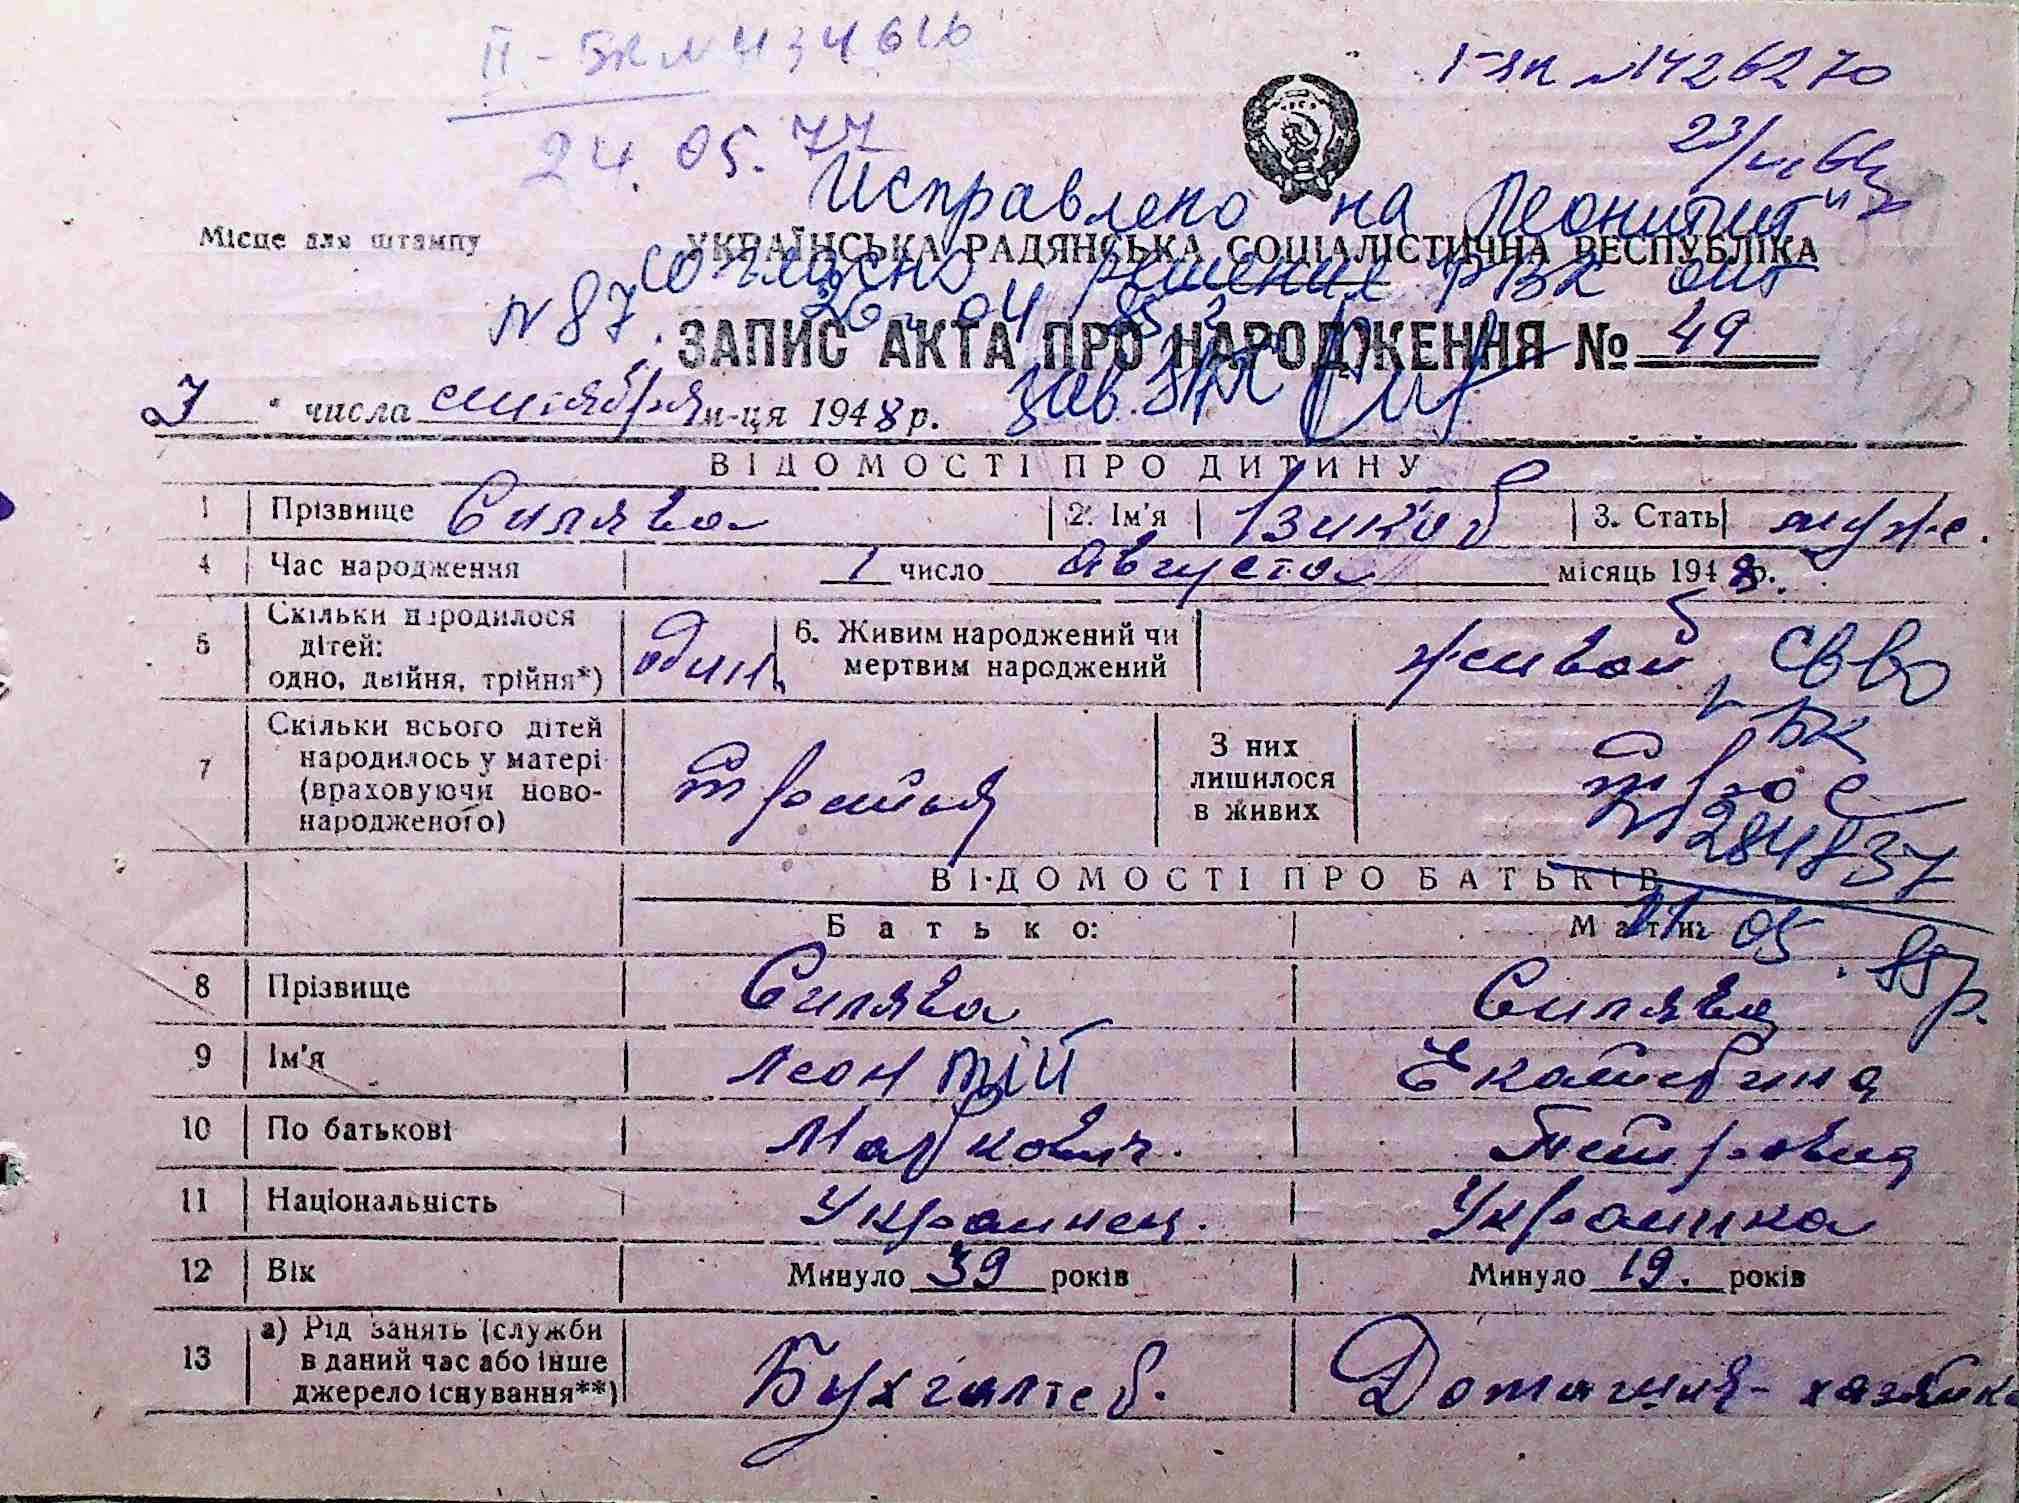 II - БК № 434616
24. 05. 77
I-ЯК №1426270
23/III 64
Исправлено на "Леонтий"
Місце для штампу
УКРАЇНСЬКА РАДЯНСЬКА СОЦІАЛІСТИЧНА РЕСПУБЛІКА
согласно решения РВК от
N 87 26 04 85 г
ЗАПИС АКТА ПРО НАРОДЖЕННЯ № 49
зав.
7 числа сентября м-ця 1948 р.
ВІДОМОСТІ ПРО ДИТИНУ
1 Прізвище Силява 2. Ім'я Якоб 3. Стать муж.
4 Час народження 1 число августа місяць 1948 р.
5 Скільки народилося дітей: одно, двійня, трійня*) один 6. Живим народжений чи мертвим народжений живой
св во
БК
7 Скільки всього дітей народилось у матері (враховуючи ново-народженого) третья З них лишилося в живих трое
№ 284837
ВІДОМОСТІ ПРО БАТЬКІВ
Батько: Мати:
11 05. 85р.
8 Прізвище Силява Силява
9 Ім'я Леонтій Екатерина
10 По батькові Маркович. Петровна
11 Національність Украинец. Украинка
12 Вік Минуло 39 років Минуло 19. років
13 а) Рід занять (служби в даний час або інше джерело існування**) Бухгалтер. Домашняя-хазяйка